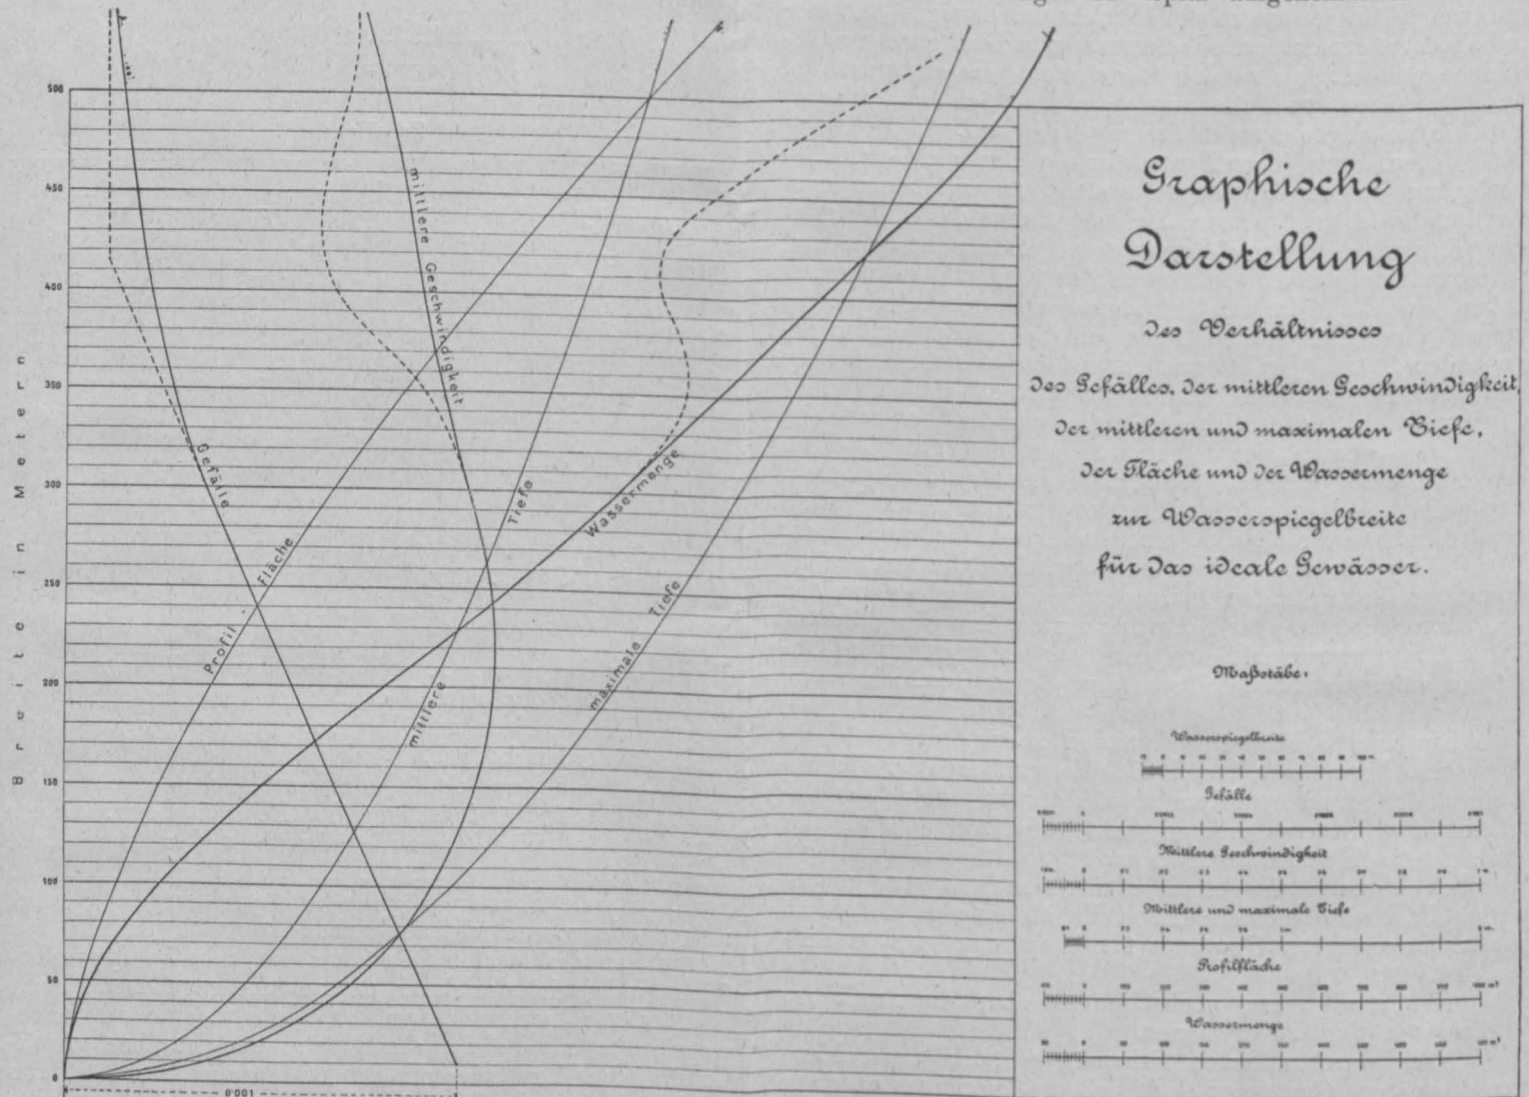 500
450
400
350
300
250
200
150
100
50
0
Breite in Metern
mittlere Geschwindigkeit
Gefälle
Profil Fläche
mittlere Tiefe
Wassermenge
maximale Tiefe
0·001
Graphische
Darstellung
des Verhältnisses
des Gefälles, der mittleren Geschwindigkeit,
der mittleren und maximalen Tiefe,
der Fläche und der Wassermenge
zur Wasserspiegelbreite
für das ideale Gewässer.
Maßstäbe:
Wasserspiegelbreite
Gefälle
Mittlere Geschwindigkeit
Mittlere und maximale Tiefe
Profilfläche
Wassermenge